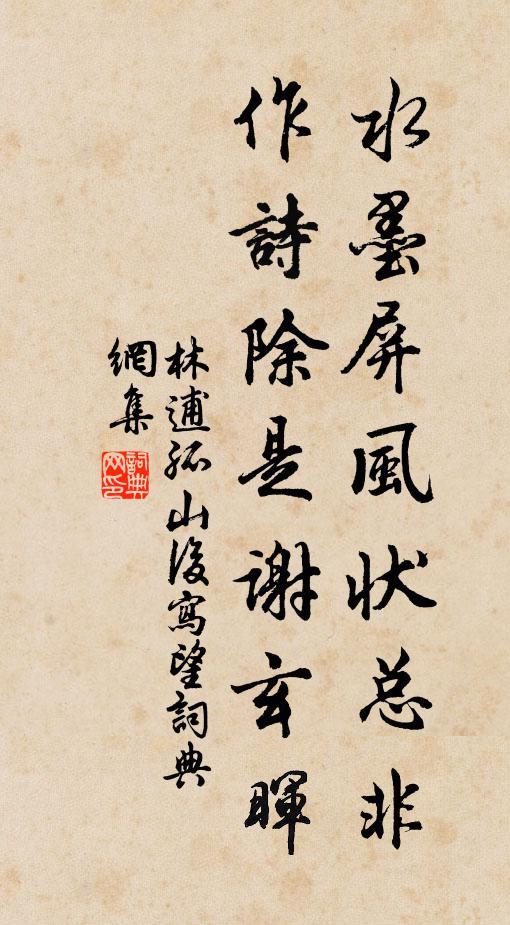 水墨屏風状总非
作詩除是谢玄暉
林逋孤山後寫望詞典
網集
詞典网印